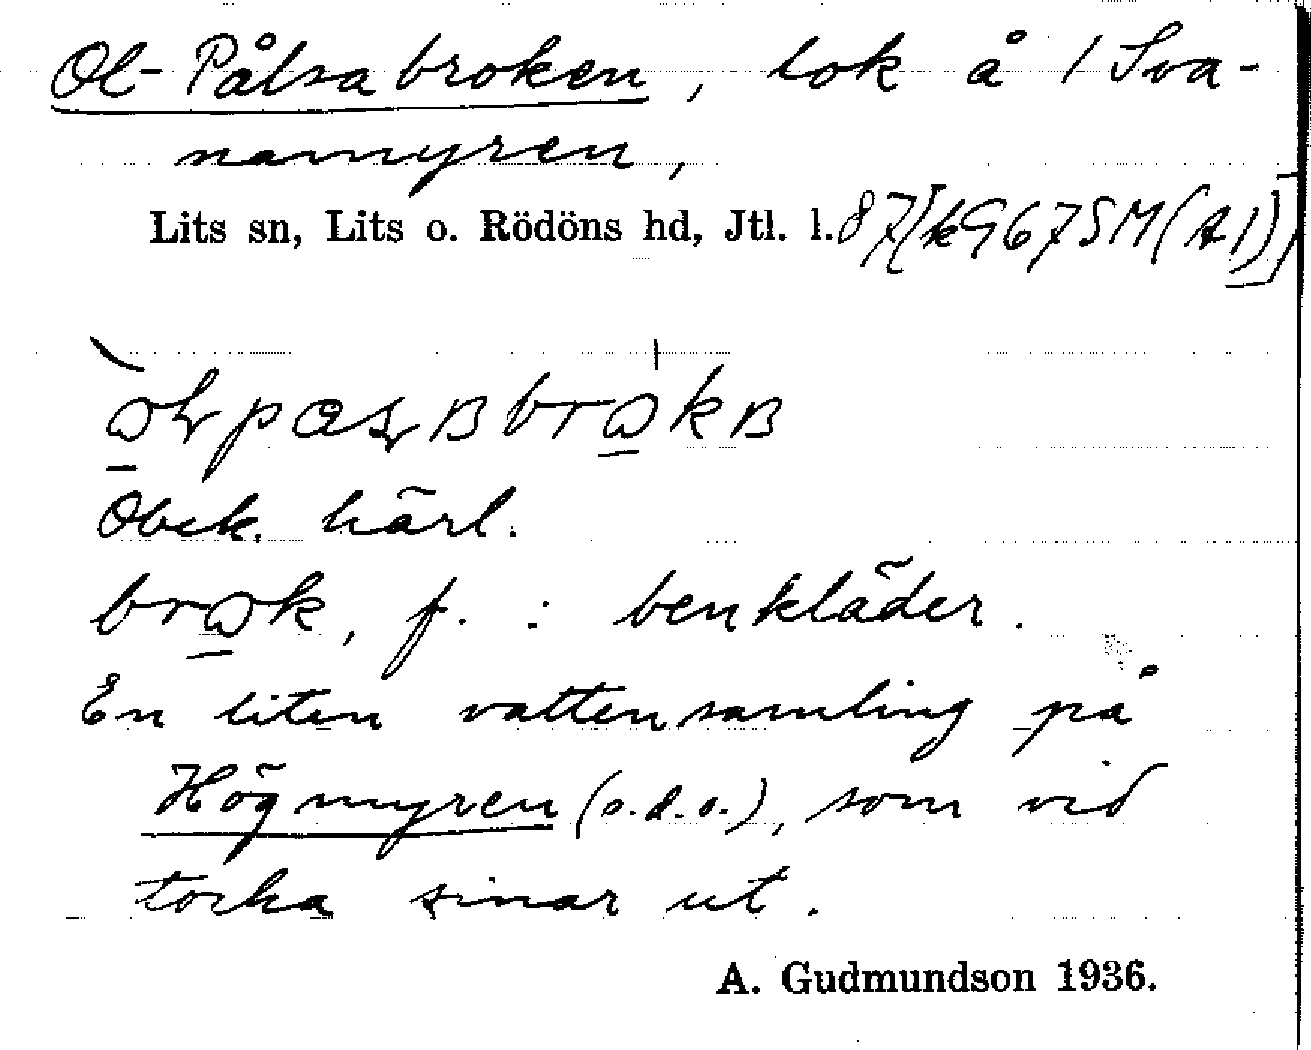 Ol-Pålsabroken, lok å 1 Sva-
namyren,
Lits sn, Lits o. Rödöns hd, Jtl. l. 87[k967SM(A1)]
Obek. härl.
brωk, f. : benkläder.
En liten vattensamling på
Högmyren (s.d.o.), som vid
torka sinar ut.
A. Gudmundson 1936.